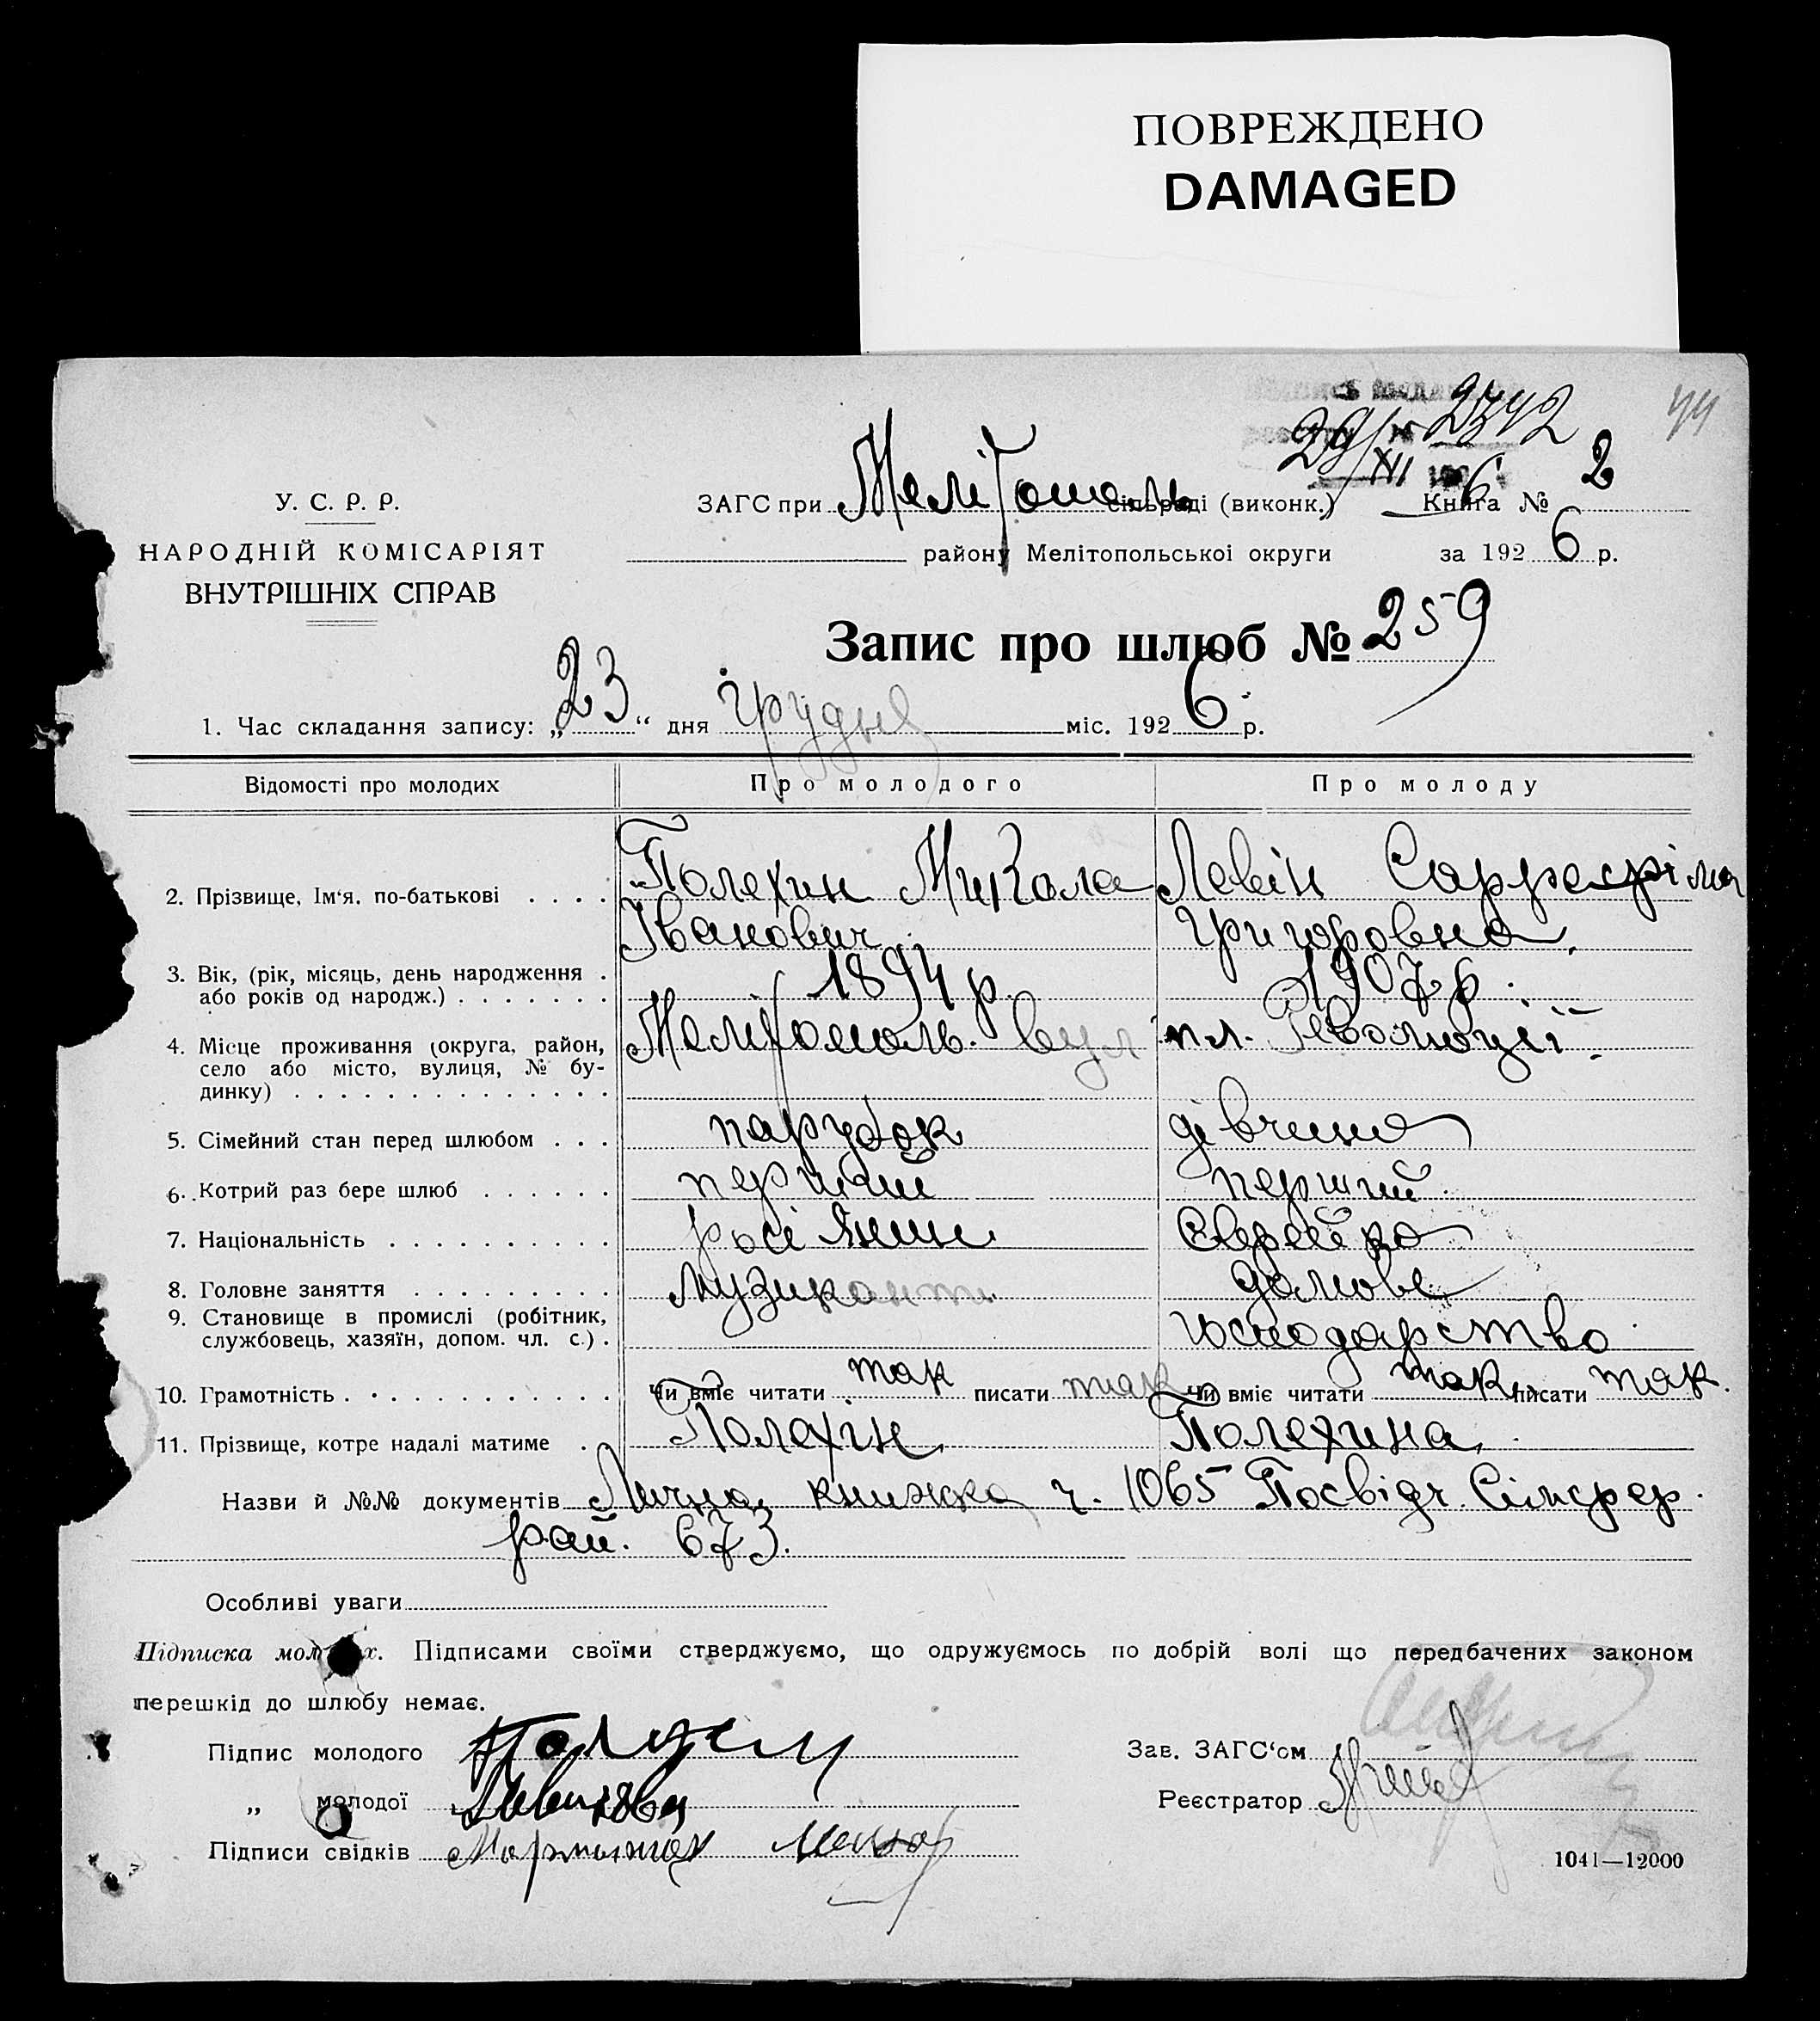 ПОВРЕЖДЕНО
DAMAGED
44
29/XII № 2342
6
У. С. Р. Р.
НАРОДНІЙ КОМІСАРІЯТ
ВНУТРІШНІХ СПРАВ
ЗАГС при Мелітополь сільраді (виконк.) Книга № 2
району Мелітопольської округи за 1926 р.
Запис про шлюб № 259
1. Час складання запису: „23“ дня грудня міс. 1926 р.
Відомості про молодих Про молодого Про молоду
2. Прізвище, Ім‘я, по-батькові Полехин Микола Левін
Іванович Григоровна
3. Вік, (рік, місяць, день народження або років од народж.) 1894 р. 1907 р.
4. Місце проживання (округа, район, село або місто, вулиця, № будинку) Мелітополь. вул пл. Революції
5. Сімейний стан перед шлюбом парубок дівчина
6. Котрий раз бере шлюб перший перший
7. Національність росіянин Єврейка
8. Головне заняття музикант домове
9. Становище в промислі (робітник, службовець, хазяїн, допом. чл. с.) господарство
10. Грамотність Чи вміє читати так писати так Чи вміє читати так писати так
11. Прізвище, котре надалі матиме Полехін Полехина
Назви й №№ документів Лична книжка ч. 1065 Посвідч. Сімфер.
рай. 673.
Особливі уваги
Підписка молодих. Підписами своїми стверджуємо, що одружуємось по добрій волі що передбачених законом
перешкід до шлюбу немає.
Підпис молодого
„ молодої
Підписи свідків
Зав. ЗАГС‘ом
Реєстратор
1041—12000